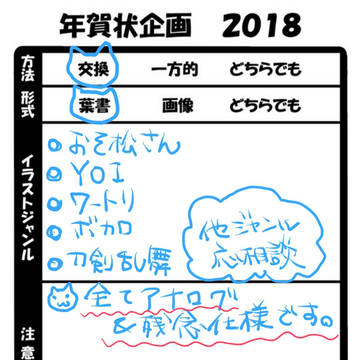 年賀状企画 2018
方法 交換 一方的 どちらでも
形式 葉書 画像 どちらでも
イラストジャンル
おそ松さん
YOI
ワートリ
ボカロ
刀剣乱舞
他ジャンル
応相談
注意
全てアナログ
&残念仕様です。